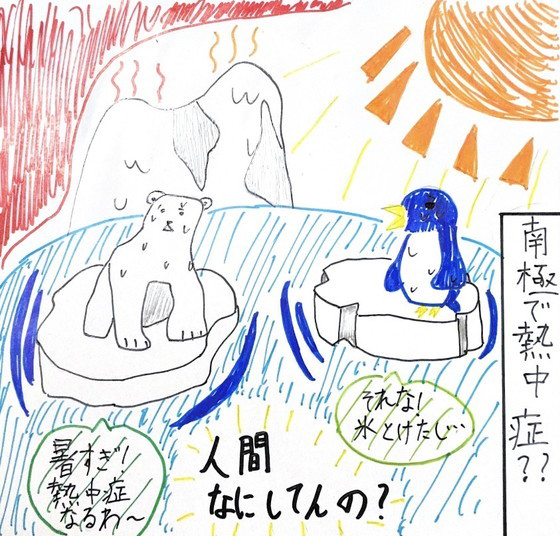 南極で熱中症??
それな!
氷とけたし…
暑すぎ!
熱中症
なるわ〜
人間
なにしてんの?